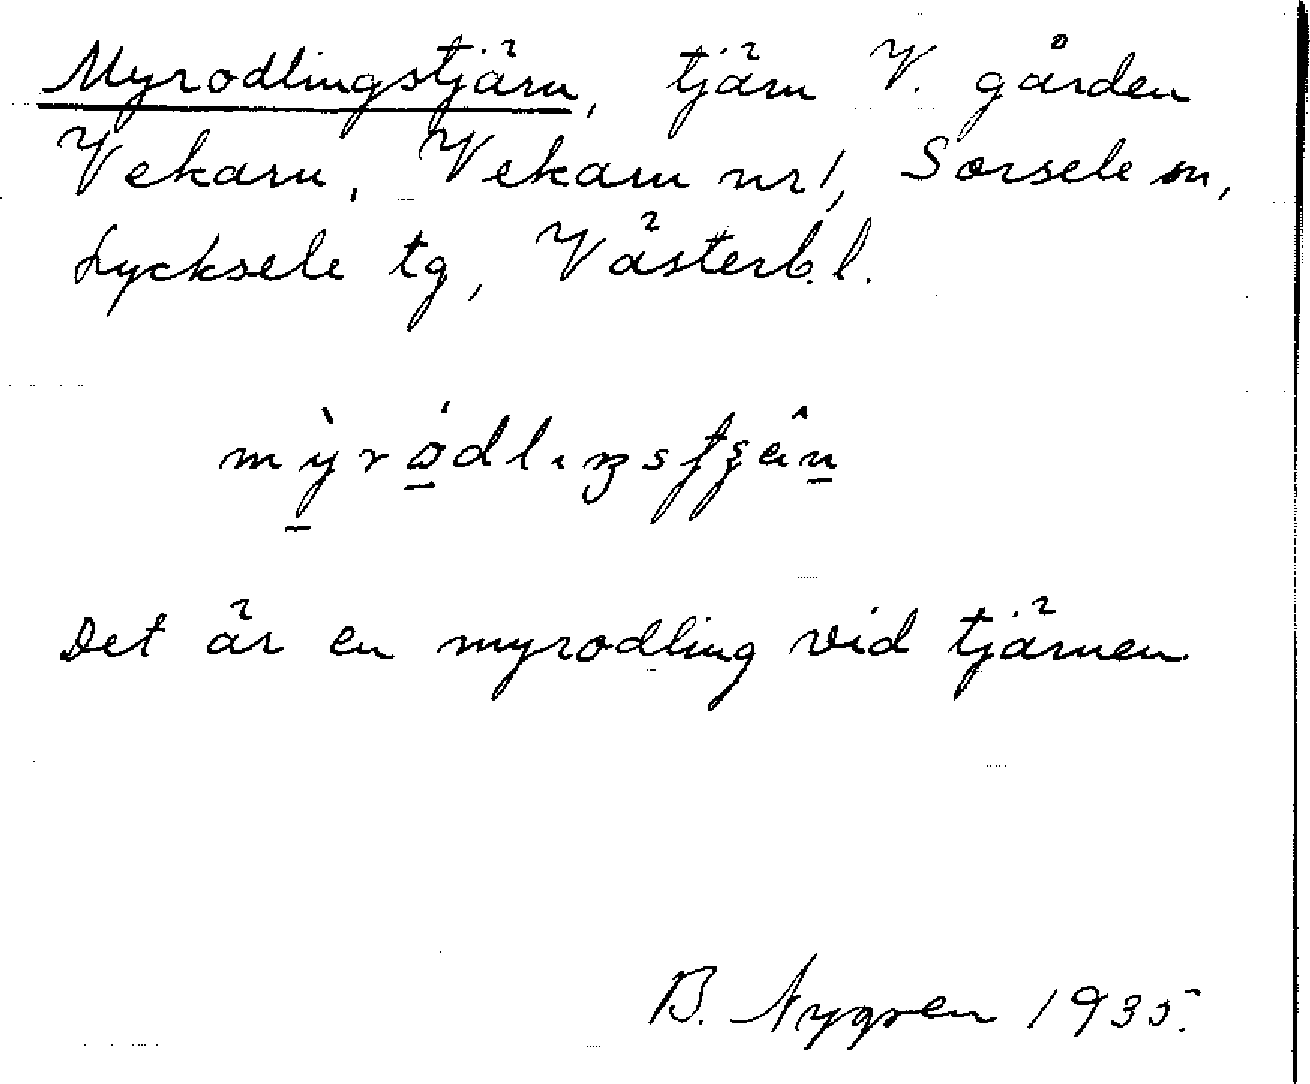 Myrodlingstjärn, tjärn V. gården
Vekarn, Vekarn nr 1, Sorsele sn,
Lycksele tg, Västerb. l.
Det är en myrodling vid tjärnen
B. Nygren 1935.